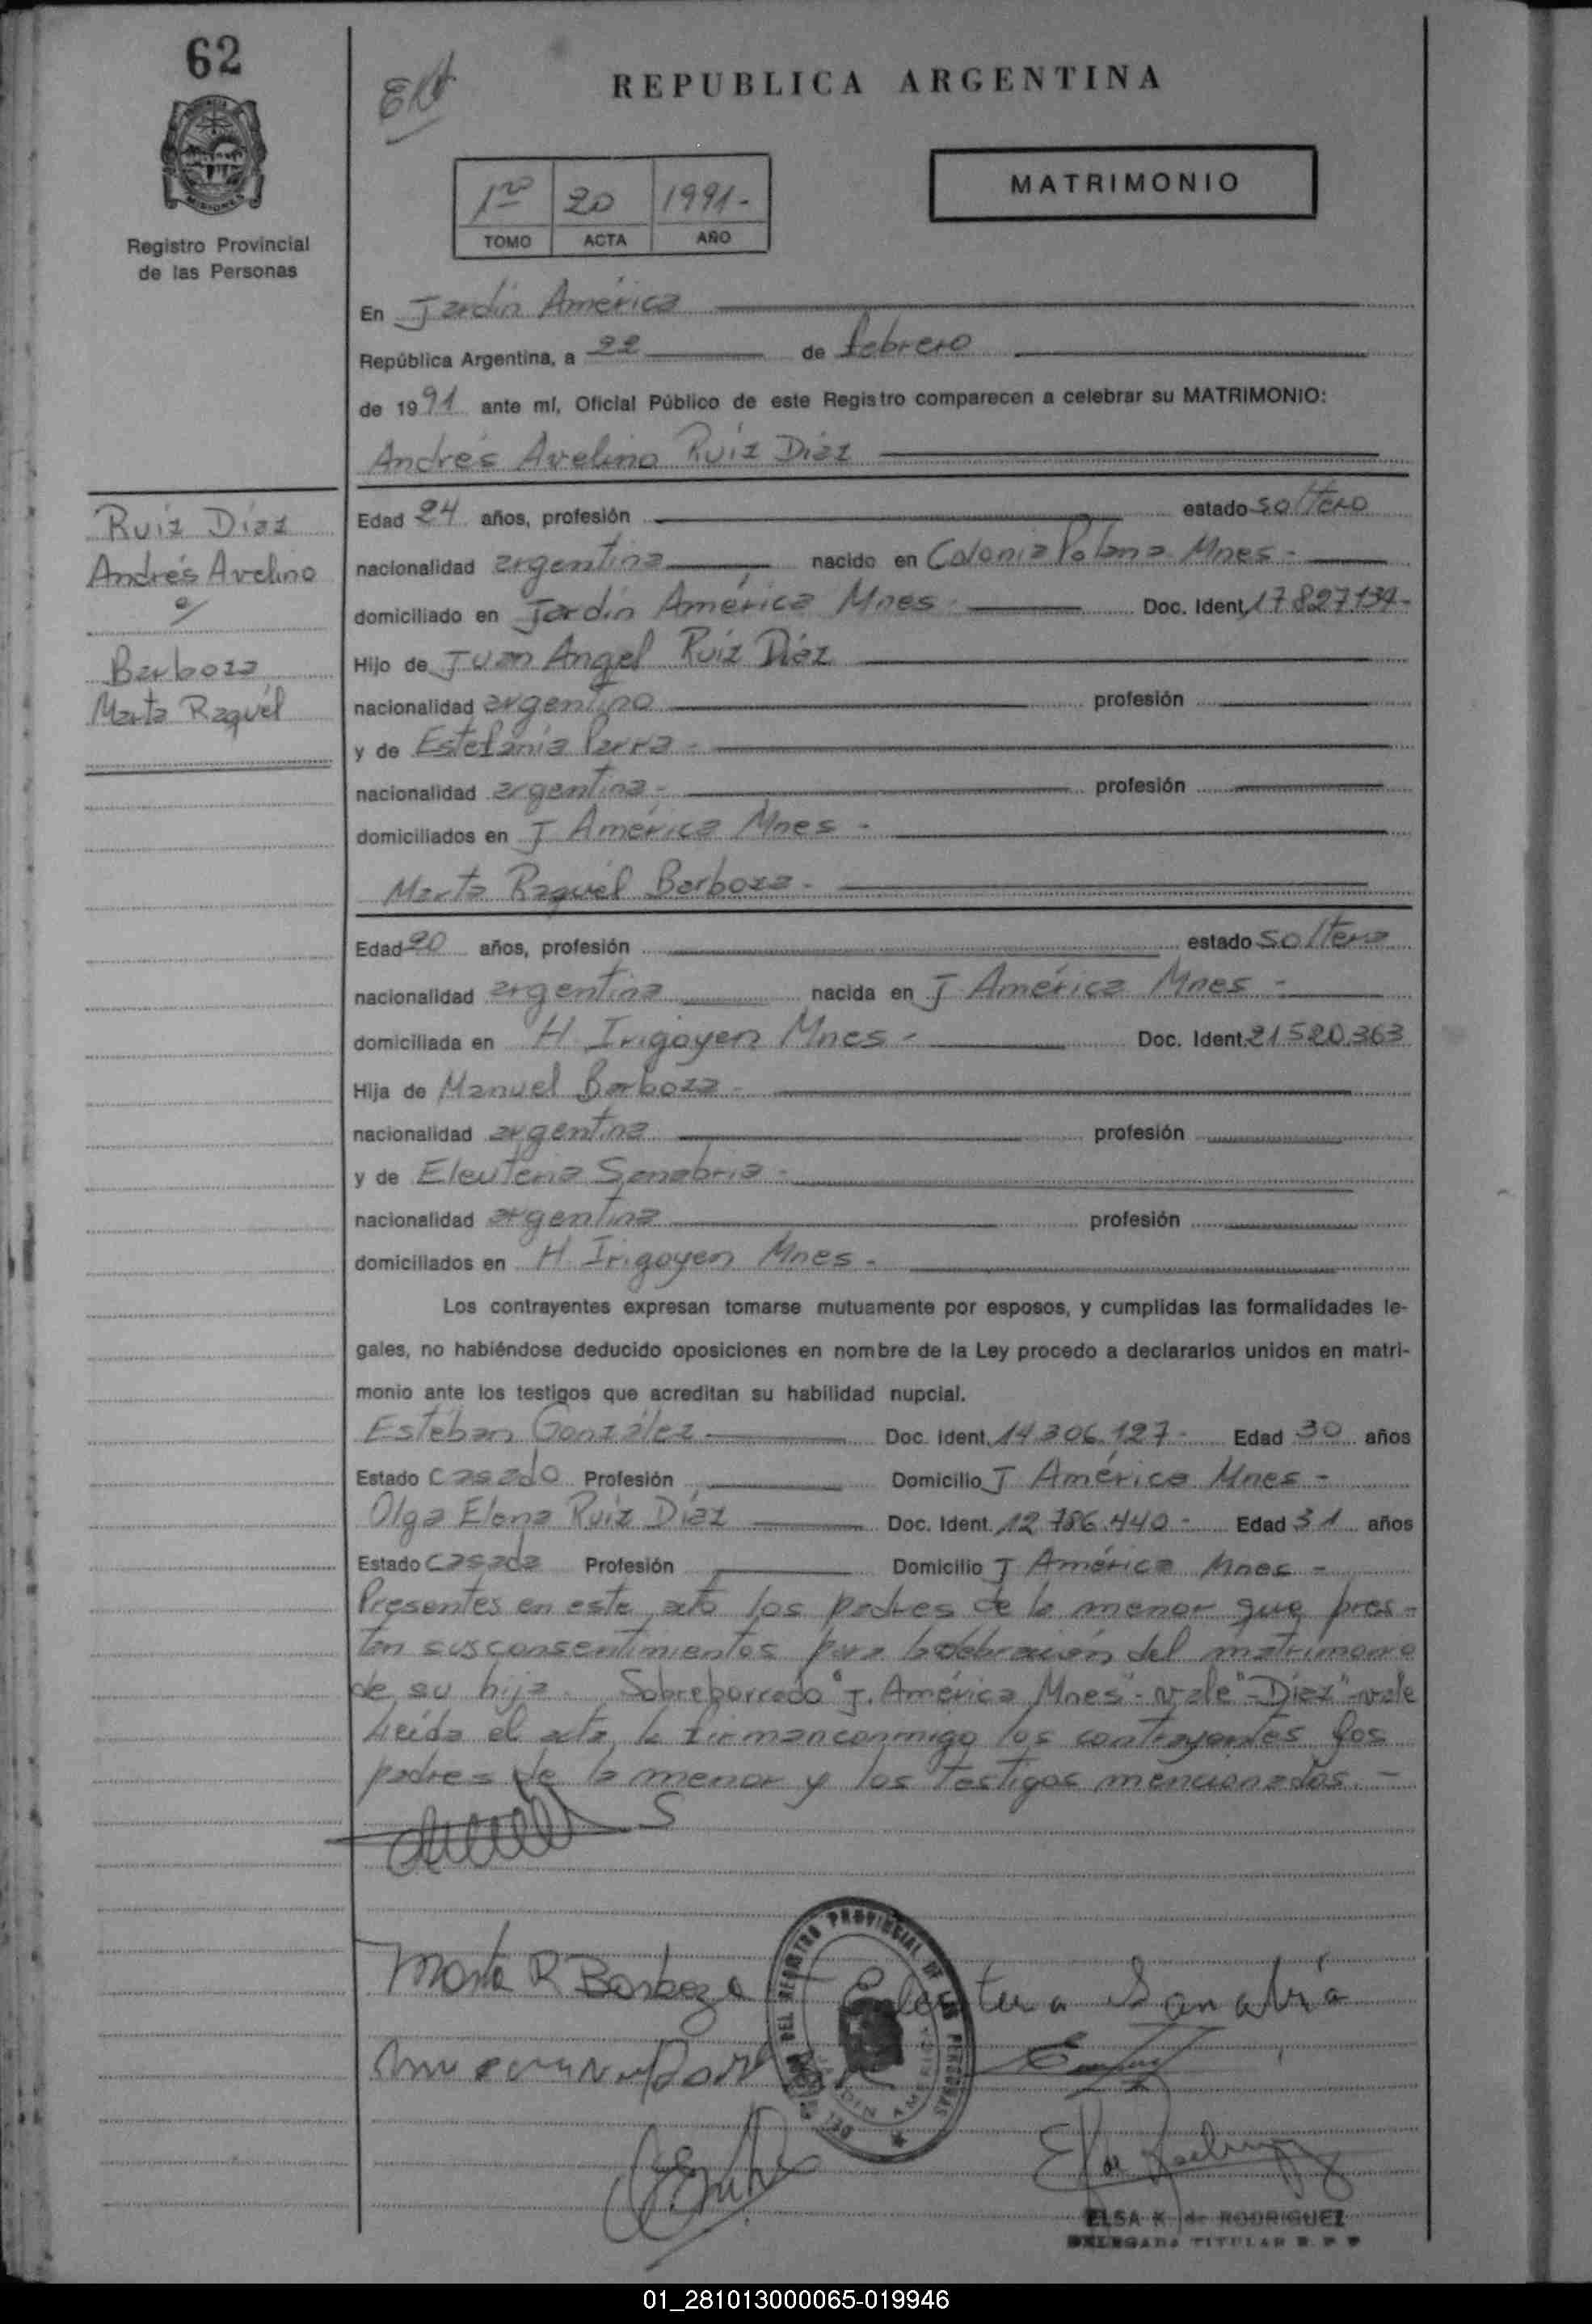 62
REPUBLICA ARGENTINA
MISIONES
Registro Provincial
de las Personas
1ro 20 1991-
TOMO ACTA AÑO
MATRIMONIO
En Jardín América
República Argentina, a 22 de febrero
de 1991 ante mí, Oficial Público de este Registro comparecen a celebrar su MATRIMONIO:
Andrés Avelino Ruiz Diaz
Ruiz Díaz
Andrés Avelino
c/
Barboza
Marta Raquél
Edad 24 años, profesión estado soltero
nacionalidad argentina nacido en Colonia Polana Mnes -
domiciliado en Jardín América Mnes Doc. Ident. 17827134-
Hijo de Juan Angel Ruiz Díaz
nacionalidad argentino profesión
y de Estefanía Parra -
nacionalidad argentina - profesión
domiciliados en J América Mnes -
Marta Raquél Barboza -
Edad 20 años, profesión estado soltera
nacionalidad argentina nacida en J América Mnes -
domiciliada en H Irigoyen Mnes - Doc. Ident. 21520.363
Hija de Manuel Barboza -
nacionalidad argentina profesión
y de Eleuteria Sanabria -
nacionalidad argentina profesión
domiciliados en H Irigoyen Mnes -
Los contrayentes expresan tomarse mutuamente por esposos, y cumplidas las formalidades le-
gales, no habiéndose deducido oposiciones en nombre de la Ley procedo a declararlos unidos en matri-
monio ante los testigos que acreditan su habilidad nupcial.
Estéban González Doc. Ident. 14.306.127- Edad 30 años
Estado casado Profesión Domicilio J América Mnes -
Olga Elena Ruiz Díaz Doc. Ident. 12.786.440- Edad 31 años
Estado casada Profesión Domicilio J América Mnes -
Presentes en este acto los padres de la menor que pres-
tan sus consentimientos para la celebración del matrimonio
de su hija. Sobreborrado "J. América Mnes"- vale "-Díaz"-vale
Leída el acta la firman conmigo los contrayentes los
padres de la menor y los testigos mencionados. -
Marta R Barboza
Eleuteria Sanabria
DEL REGISTRO PROVINCIAL DE LAS PERSONAS
JARDIN AMERICA
ELSA K. de RODRIGUEZ
DELEGADA TITULAR R. P. P.
01_281013000065-019946